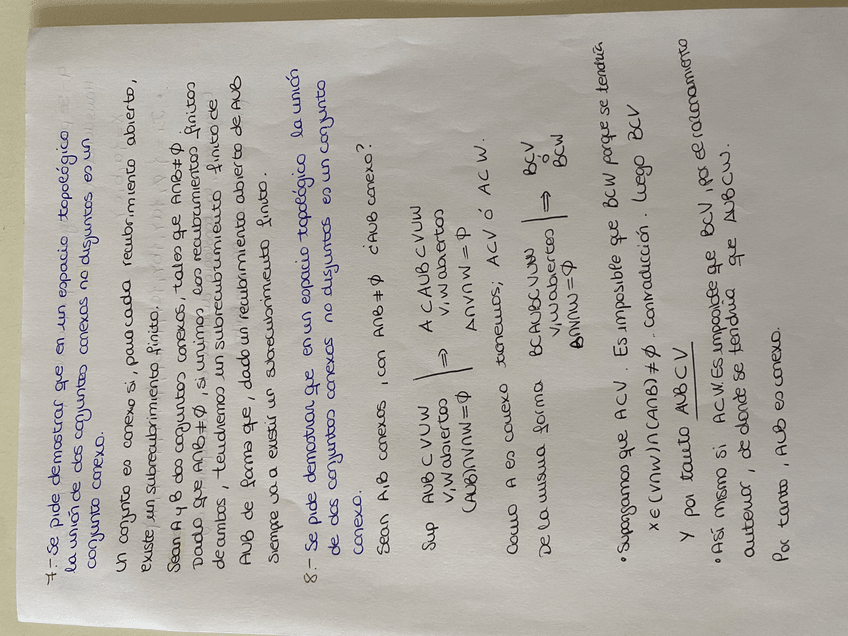 7.- Se pide demostrar que en un espacio topológico
la unión de dos conjuntos conexos no disjuntos es un
conjunto conexo.
Un conjunto es conexo si, para cada recubrimiento abierto,
existe un subrecubrimiento finito.
Sean A y B dos conjuntos conexos, tales que A∩B≠∅.
Dado que A∩B≠∅, si unimos los recubrimientos finitos
de ambos, tendremos un subrecubrimiento finito de
AUB de forma que, dado un recubrimiento abierto de AUB
siempre va a existir un subrecubrimiento finito.
8.- Se pide demostrar que en un espacio topológico la unión
de dos conjuntos conexos no disjuntos es un conjunto
conexo.
Sean A,B conexos, con A∩B≠∅ ¿AUB conexo?
Sup AUB⊂VUW
V,W abiertos
(AUB)∩V∩W=∅ | ⇒ A⊂AUB⊂VUW
V,W abiertos
A∩V∩W=∅
Como A es conexo tenemos; A⊂V ó A⊂W.
De la misma forma B⊂AUB⊂VUW
V,W abiertos
B∩V∩W=∅ | ⇒ B⊂V
ó
B⊂W
• Supongamos que A⊂V. Es imposible que B⊂W porque se tendría
x∈(V∩W)∩(A∩B)≠∅. contradicción. Luego B⊂V
Y por tanto AUB⊂V
• Así mismo si A⊂W. Es imposible que B⊂V, por el razonamiento
anterior, de donde se tendría que AUB⊂W.
Por tanto, AUB es conexo.